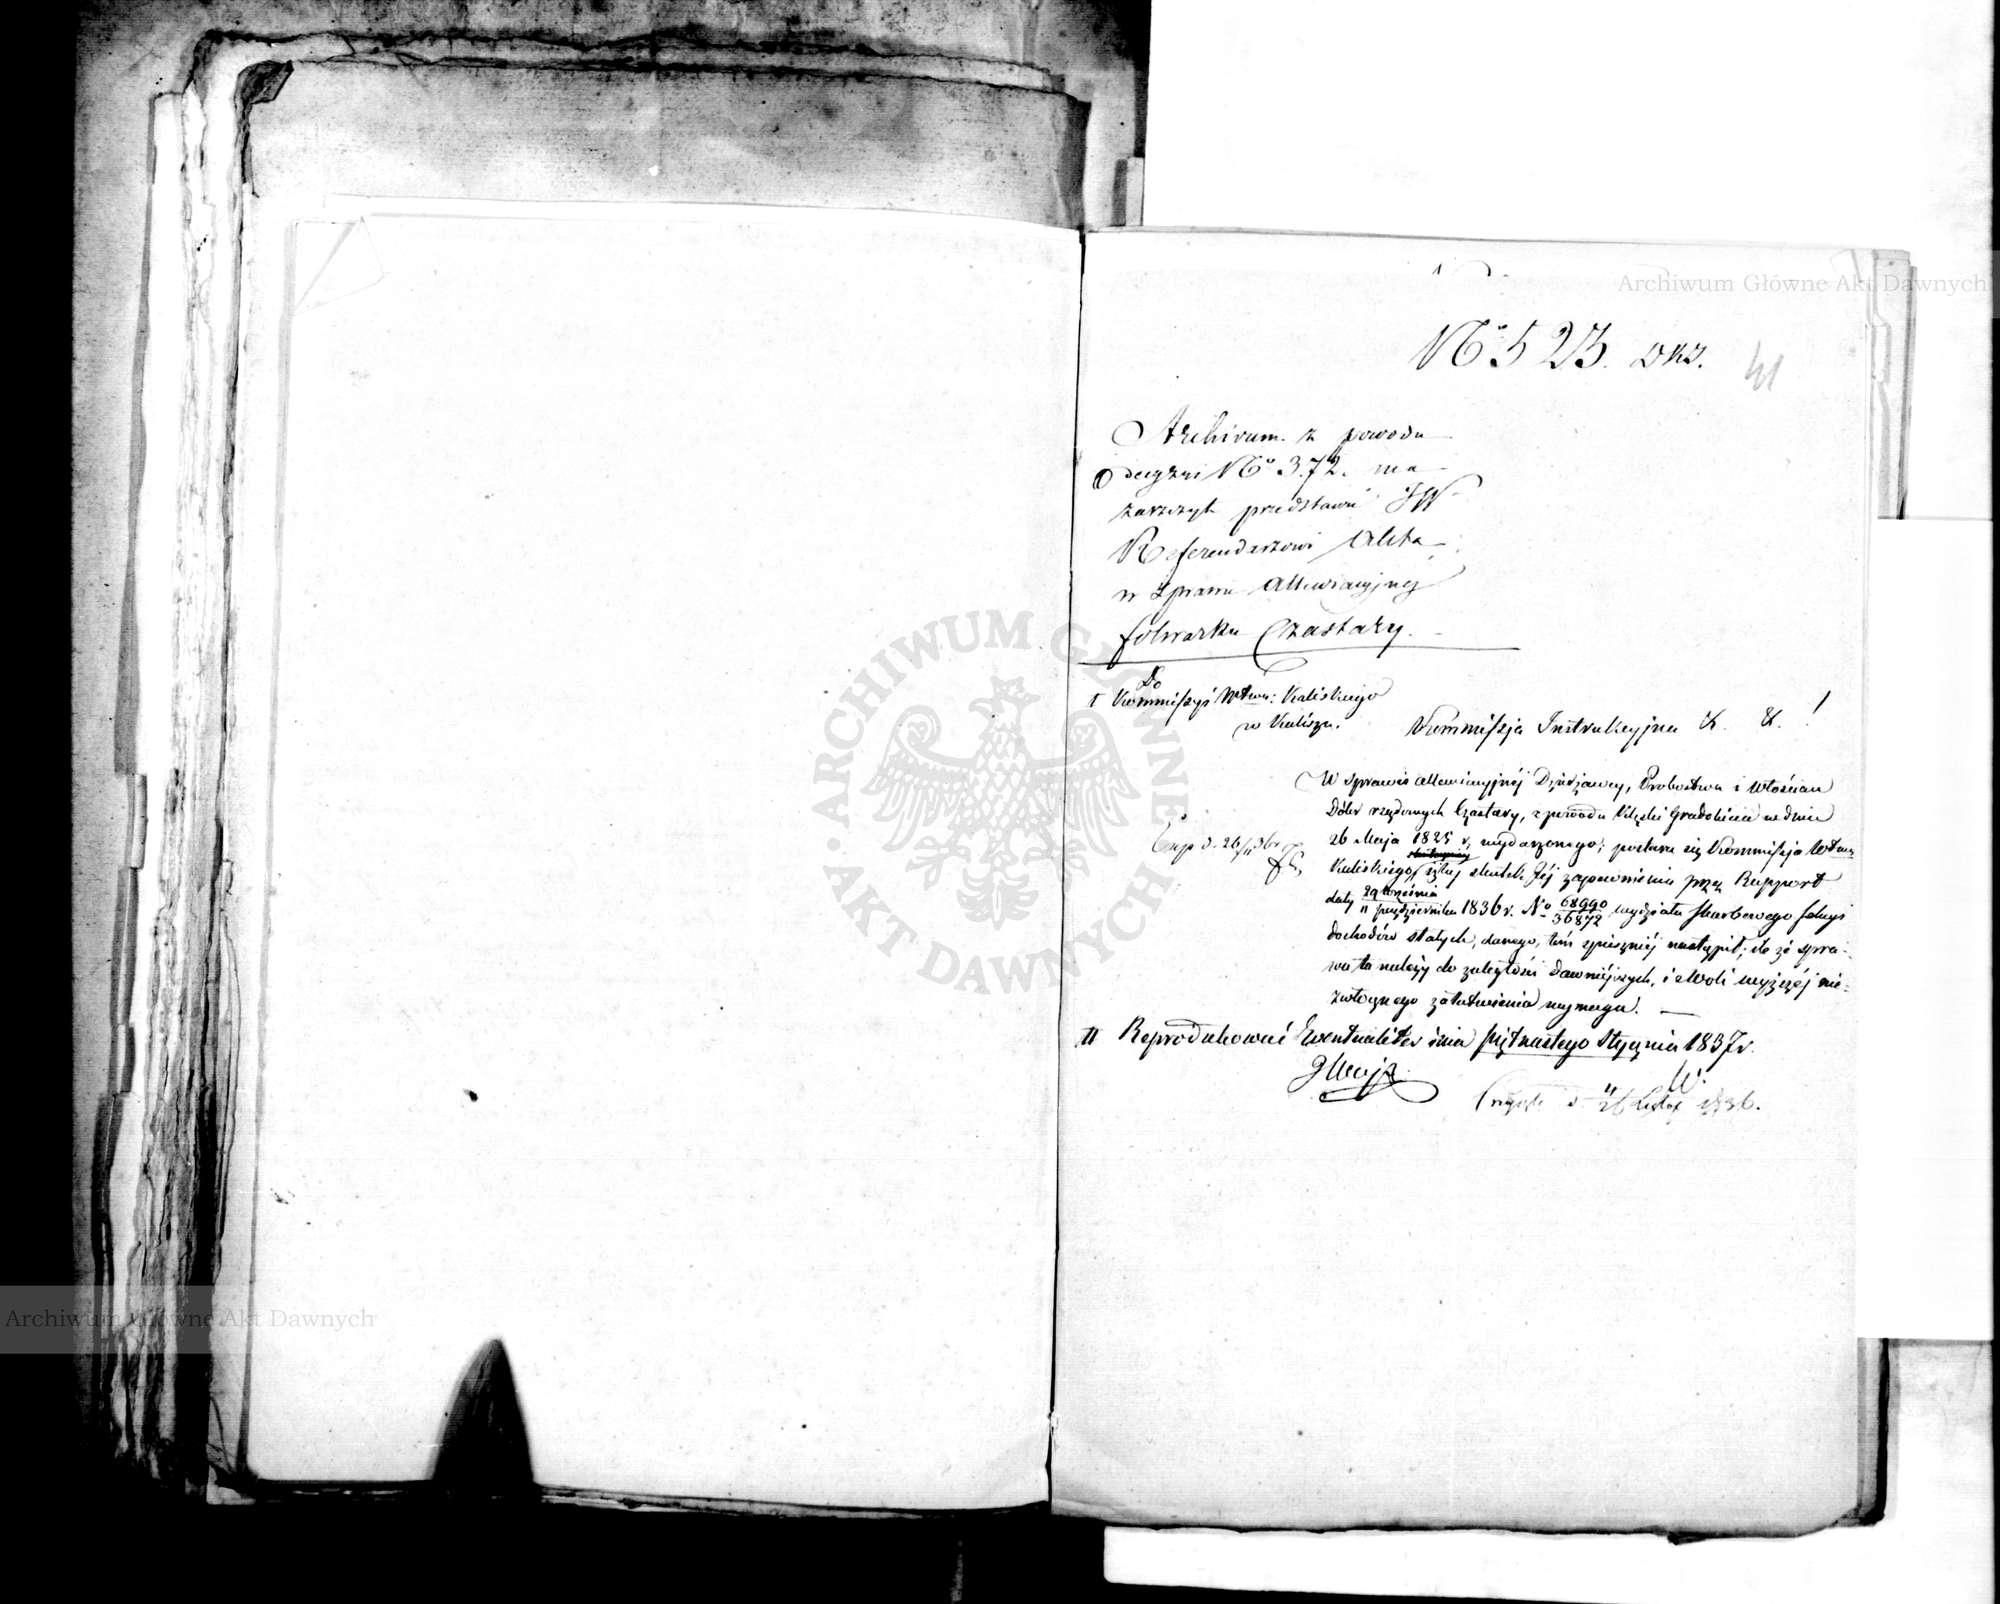 Archiwum Główne Akt Dawnych
No 523. 
41
Archivum. z powodu
decyzyi No 372. ma
zaszczyt przedstawić JW
Referendarzowi Akta
w sprawie allewiacyjnej
folwarku Czastary.
I Do
Kommissyi Wtwa: Kaliskiego
w Kaliszu.
Kommissja Instrukcyjna &. &. !
W sprawie allewiacyjnéj Dzierżawcy, Probostwa i Włościan
Dóbr rządowych Czastary, z powodu klęski Gradobicia w dniu
26 Maja 1825 r. wydarzonego; postara się Kommissja Wtwa
Exp d. 26/11 36
Kaliskiego, iżby skutek Jéj zapewnienia przez Rapport
daty 29 Września
11 października 1836 r. No 68990
36872 wydziału Skarbowego Sekcyi
dochodów stałych, danego, tém spieszniéj nastąpił; ile że spra-
wa ta należy do zaległości dawniejszych, i z Woli wyższéj nie-
zwłocznego załatwienia wymaga. —
II Reprodukować Eventualiter dnia piętnastego Stycznia 1837 r.
d. 11/26 1836.
ARCHIWUM GŁÓWNE AKT DAWNYCH
Archiwum Główne Akt Dawnych